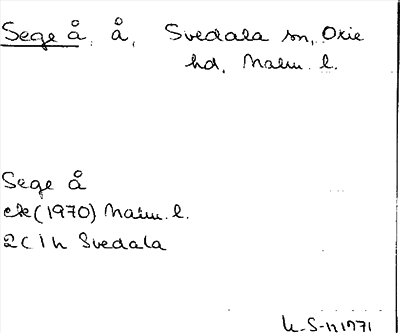 Sege å, å, Svedala sn, Oxie
hd, Malm. l.
Sege å
ek (1970) Malm. l.
2C 1 h Svedala
1971